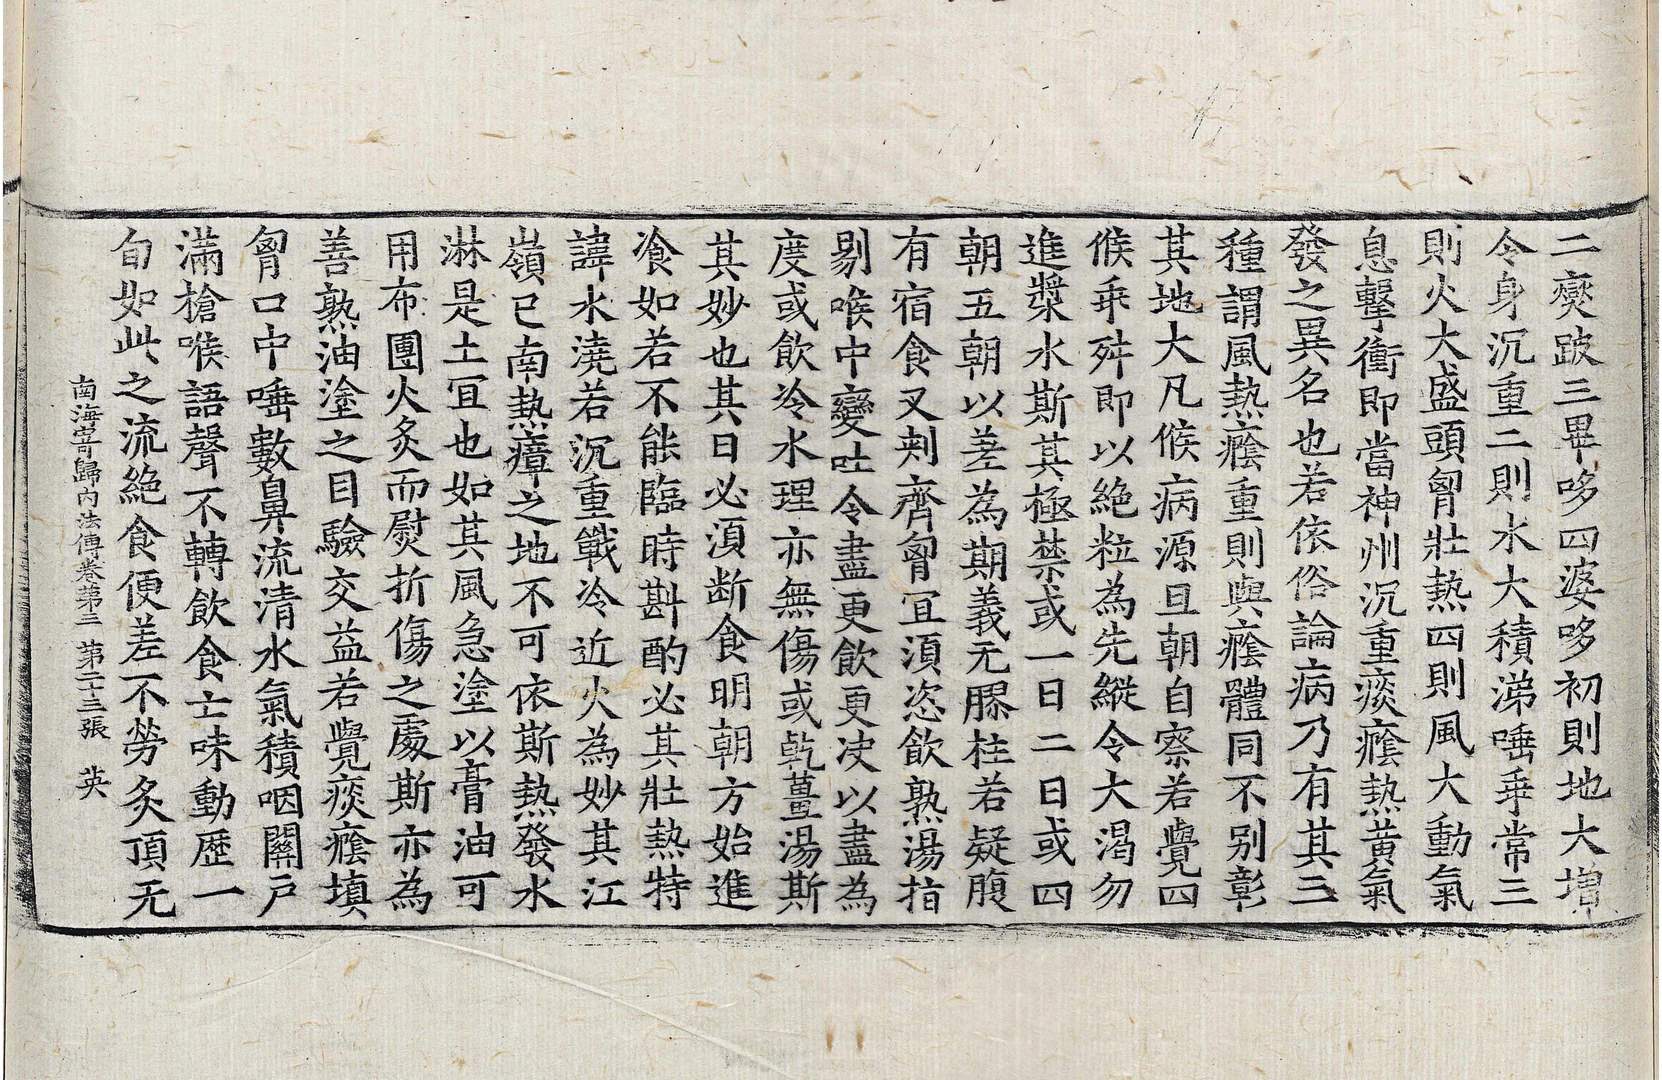 二爕跛三畢哆四婆哆初則地大增
令身沉重二則水大積涕唾乖常三
則火大盛頭胷壯熱四則風大動氣
息擊衝即當神州沉重痰癊熱黃氣
發之異名也若依俗論病乃有其三
種謂風熱癊重則與癊體同不別彰
其地大凡候病源旦朝自察若覺四
候乖舛即以絶粒為先縱令大渴勿
進漿水斯其極禁或一日二日或四
朝五朝以差為期義无膠柱若疑腹
有宿食叉刾齊胷冝湏恣飲熟湯指
剔喉中變吐令盡更飲更决以盡為
度或飲冷水理亦無傷或乾薑湯斯
其妙也其日必湏断食明朝方始進
飡如若不能臨時斟酌必其壯熱特
諱水澆若沉重戰冷近火為妙其江
嶺已南熱瘴之地不可依斯熱發水
淋是土冝也如其風急塗以膏油可
用布團火炙而熨折傷之處斯亦為
善熟油塗之目驗交益若覺痰癊填
胷口中唾數鼻流清水氣積咽關戶
滿槍喉語聲不轉飲食亡味動歷一
旬如此之流絶食便差不勞炙頂无
南海寄歸內法傳卷第三 第二十三張 英